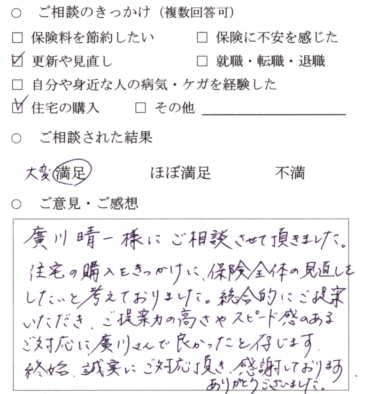 ○ ご相談のきっかけ（複数回答可）
□ 保険料を節約したい □ 保険に不安を感じた
☑ 更新や見直し □ 就職・転職・退職
□ 自分や身近な人の病気・ケガを経験した
☑ 住宅の購入 □ その他
○ ご相談された結果
大変満足 ほぼ満足 不満
○ ご意見・ご感想
廣川晴一様にご相談させて頂きました。
住宅の購入をきっかけに、保険全体の見直しを
したいと考えておりました。統合的にご提案
いただき、ご提案力の高さやスピード感のある
ご対応に廣川さんで良かったと存じます。
終始、誠実にご対応頂き、感謝しております。
ありがとうございました。